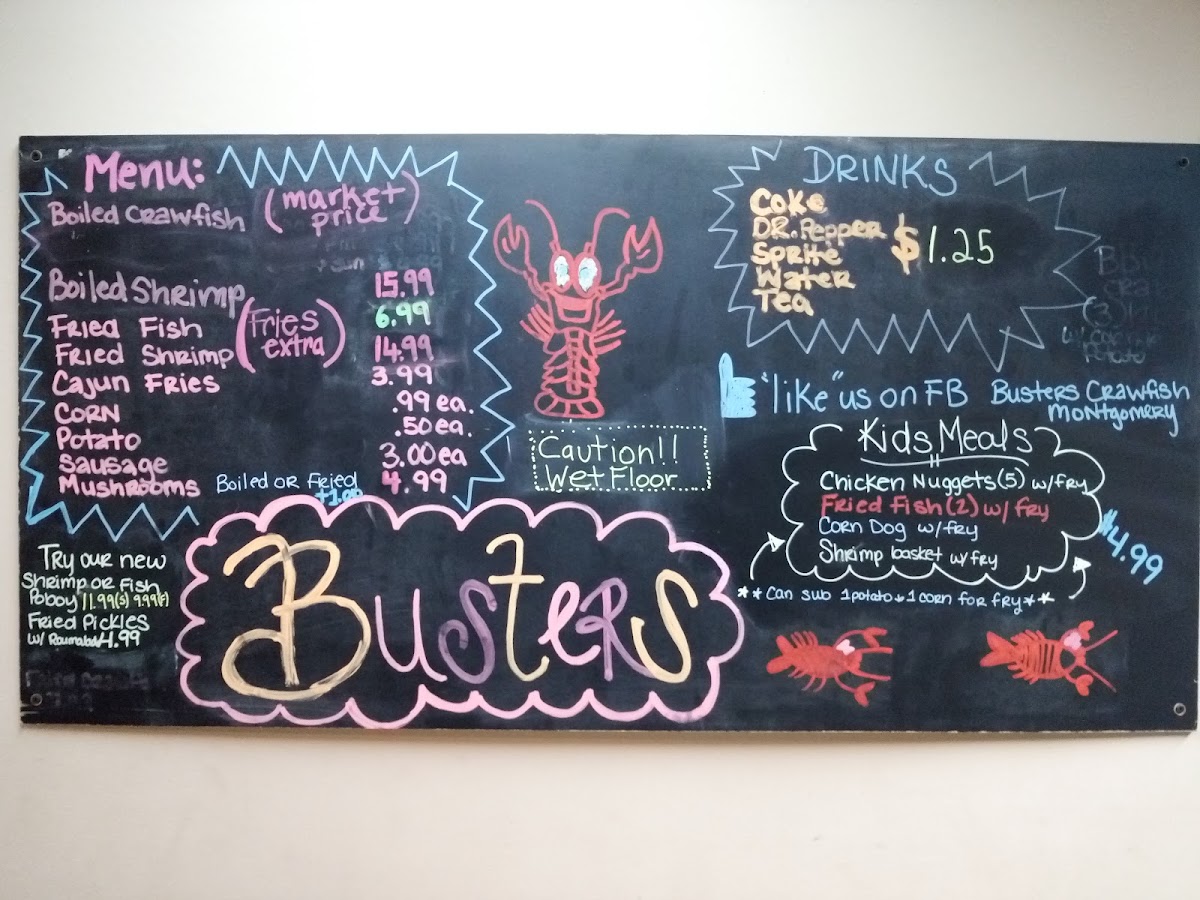 Menu:
Boiled Crawfish (market price)
Boiled Shrimp 15.99
Fried Fish (Fries extra) 6.99
Fried Shrimp 14.99
Cajun Fries 3.99
Corn .99 ea.
Potato .50 ea.
Sausage 3.00 ea
Mushrooms Boiled or Fried +1.00 4.99
Try our new
Shrimp or Fish
Poboy 11.99(s) 9.99(F)
Fried Pickles
w/ 4.99
Caution!!
Wet Floor
Busters
DRINKS
Coke
DR. Pepper
Sprite $1.25
Water
Tea
"like" us on FB Busters Crawfish
Montgomery
Kids Meals
Chicken Nuggets (5) w/fry
Fried Fish (2) w/ fry
Corn Dog w/fry
Shrimp basket w/fry
$4.99
**Can sub 1 potato & 1 corn for fry**